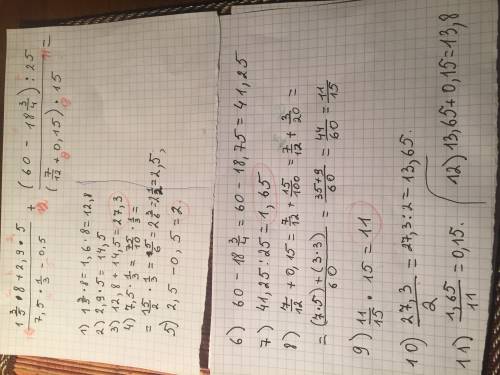 (1 3/5 · 8 + 2,9 · 5) / (7,5 · 1/3 - 0,5) + ((60 - 18 3/4) : 25) / ((7/12 + 0,15) · 15) =
1) 1 3/5 · 8 = 1,6 · 8 = 12,8
2) 2,9 · 5 = 14,5
3) 12,8 + 14,5 = 27,3
4) 7,5 · 1/3 = 75/10 · 1/3 =
= 15/2 · 1/3 = 15/6 = 2 3/6 = 2 1/2 = 2,5,
5) 2,5 - 0,5 = 2.
6) 60 - 18 3/4 = 60 - 18,75 = 41,25
7) 41,25 : 25 = 1,65
8) 7/12 + 0,15 = 7/12 + 15/100 = 7/12 + 3/20 =
= ((7·5) + (3·3))/60 = (35+9)/60 = 44/60 = 11/15
9) 11/15 · 15 = 11
10) 27,3/2 = 27,3 : 2 = 13,65.
11) 1,65/11 = 0,15.
12) 13,65 + 0,15 = 13,8